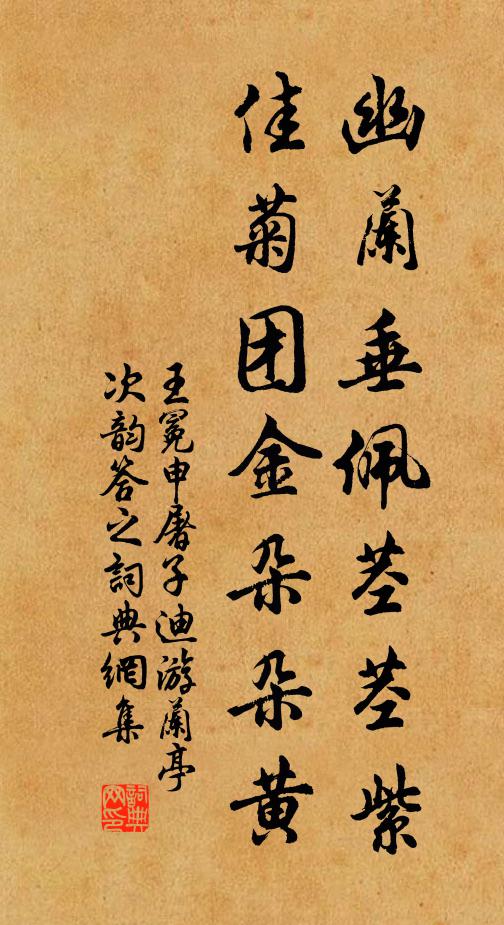 幽蘭垂佩茎茎紫
佳菊团金朵朵黄
王冕申屠子迪游蘭亭
次韵答之詞典網集
詞典网印